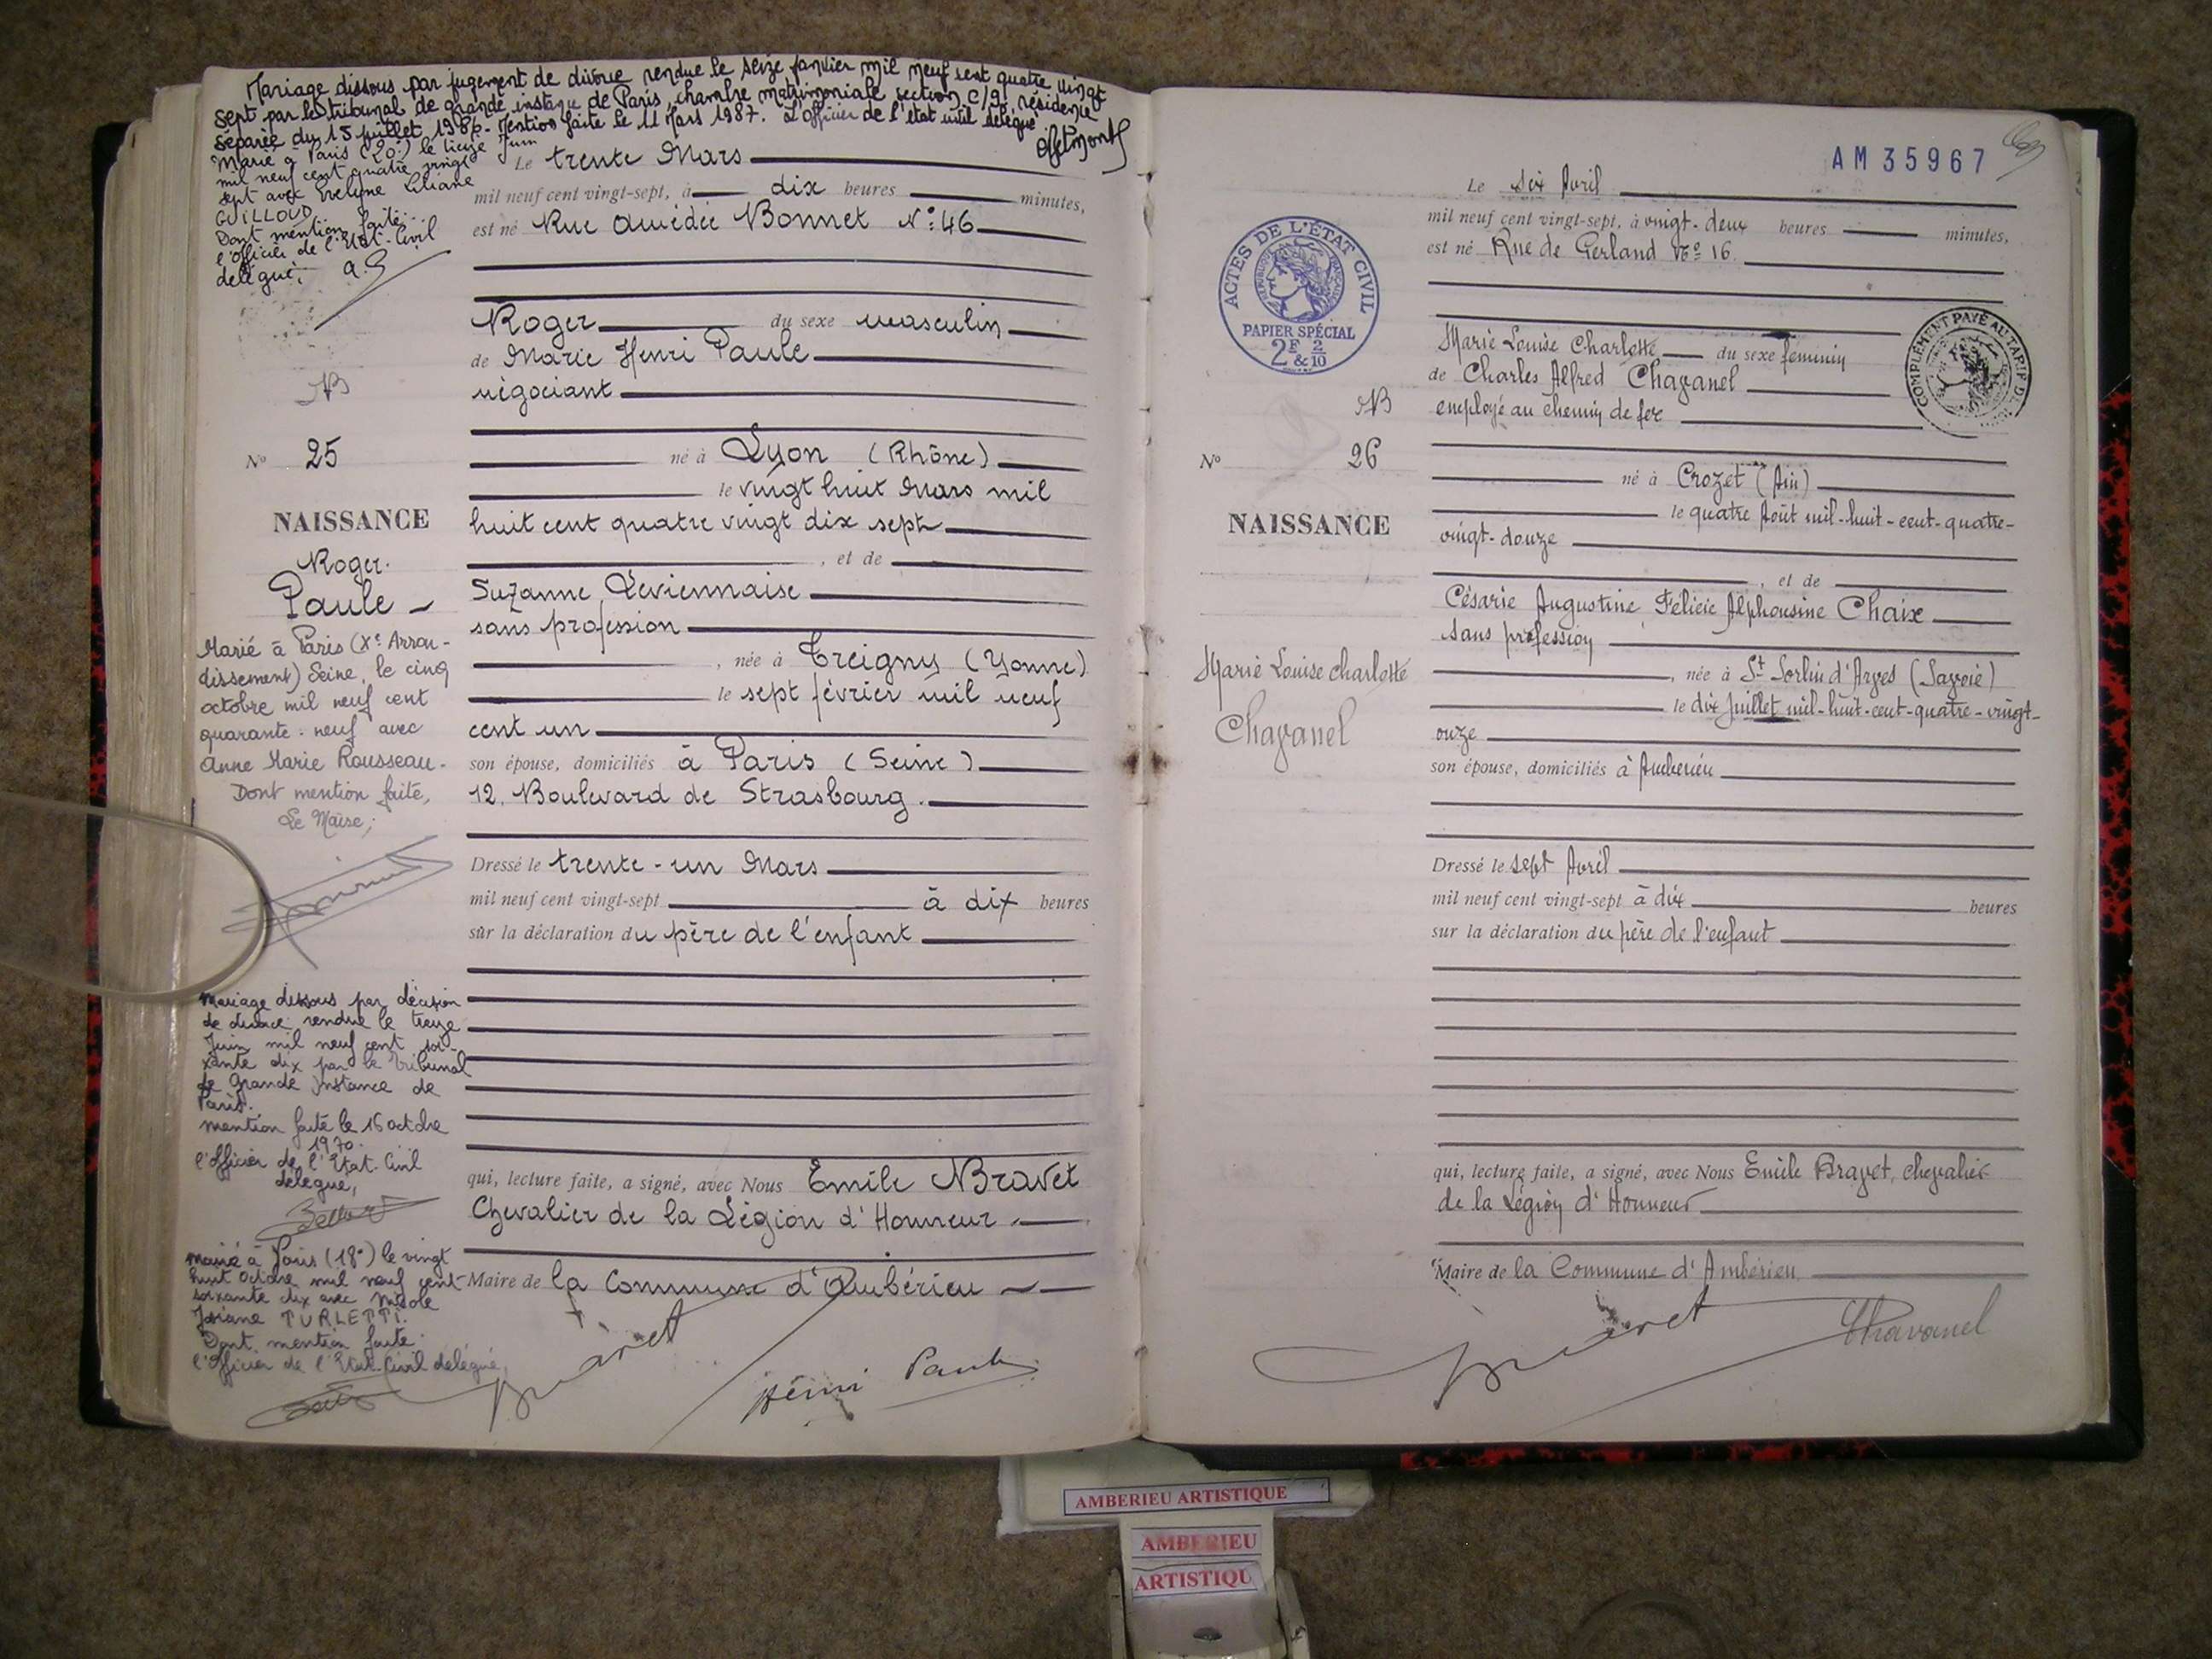 Mariage dissous par jugement de divorce rendue le seize janvier mil neuf cent quatre vingt
sept par le tribunal de grande instance de Paris, chambre matrimoniale section C/9, résidence
séparée du 15 juillet 1986 - Mention faite le 11 Mars 1987. L'officier de l'état civil délégué
Marié à Paris (20e) le treize Juin
mil neuf cent quatre vingt
sept avec Evelyne Liliane
GUILLOUD
Dont mention faite...
l'officier de l'Etat-Civil
délégué,
Le trente Mars
mil neuf cent vingt-sept, à dix heures minutes,
est né Rue Amédée Bonnet N°: 46
Roger du sexe masculin
de Marie Henri Paule
négociant
né à Lyon (Rhône)
le vingt huit Mars mil
huit cent quatre vingt dix sept
, et de
Suzanne Leviennaise
sans profession
, née à Treigny (Yonne)
le sept février mil neuf
cent un
son épouse, domiciliés à Paris (Seine)
12, Boulevard de Strasbourg.
Dressé le trente-un Mars
mil neuf cent vingt-sept à dix heures
sur la déclaration du père de l'enfant
qui, lecture faite, a signé, avec Nous Emile Bravet
Chevalier de la Légion d'Honneur
Maire de la Commune d'Ambérieu
NB
N° 25
NAISSANCE
Roger
Paule
Marié à Paris (Xe Arron-
dissement) Seine, le cinq
octobre mil neuf cent
quarante-neuf avec
Anne Marie Rousseau.
Dont mention faite,
Le Maire,
Mariage dissous par décision
de divorce rendue le treize
Juin mil neuf cent soi-
xante dix par le Tribunal
de Grande Instance de
Paris.
mention faite le 16 octobre
1970.
l'officier de l'Etat-Civil
délégué,
Marié à Paris (18e) le vingt
huit octobre mil neuf cent
soixante dix avec Nicole
Josiane TURLETTI.
Dont mention faite.
l'Officier de l'Etat-Civil délégué,
Bravet
Henri Paule
AM 35967
Le six Avril
mil neuf cent vingt-sept, à vingt-deux heures minutes,
est né Rue de Gerland N° 16
Marie Louise Charlotte du sexe féminin
de Charles Alfred Chavanel
employé au chemin de fer
né à Crozet (Ain)
le quatre Août mil-huit-cent-quatre-
vingt-douze
, et de
Césarie Augustine Félicie Alphonsine Chaix
sans profession
, née à St Sorlin d'Arves (Savoie)
le dix Juillet mil-huit-cent-quatre-vingt-
onze
son épouse, domiciliés à Ambérieu
Dressé le sept Avril
mil neuf cent vingt-sept à dix heures
sur la déclaration du père de l'enfant
qui, lecture faite, a signé, avec Nous Emile Bravet, chevalier
de la Légion d'Honneur
Maire de la Commune d'Ambérieu
ACTES DE L'ÉTAT CIVIL
RÉPUBLIQUE FRANÇAISE
PAPIER SPÉCIAL
2F & 2/10
COMPLÉMENT PAYÉ AU TARIF DE
NB
N° 26
NAISSANCE
Marie Louise Charlotte
Chavanel
Bravet
Chavanel
AMBERIEU ARTISTIQUE
AMBERIEU
ARTISTIQU